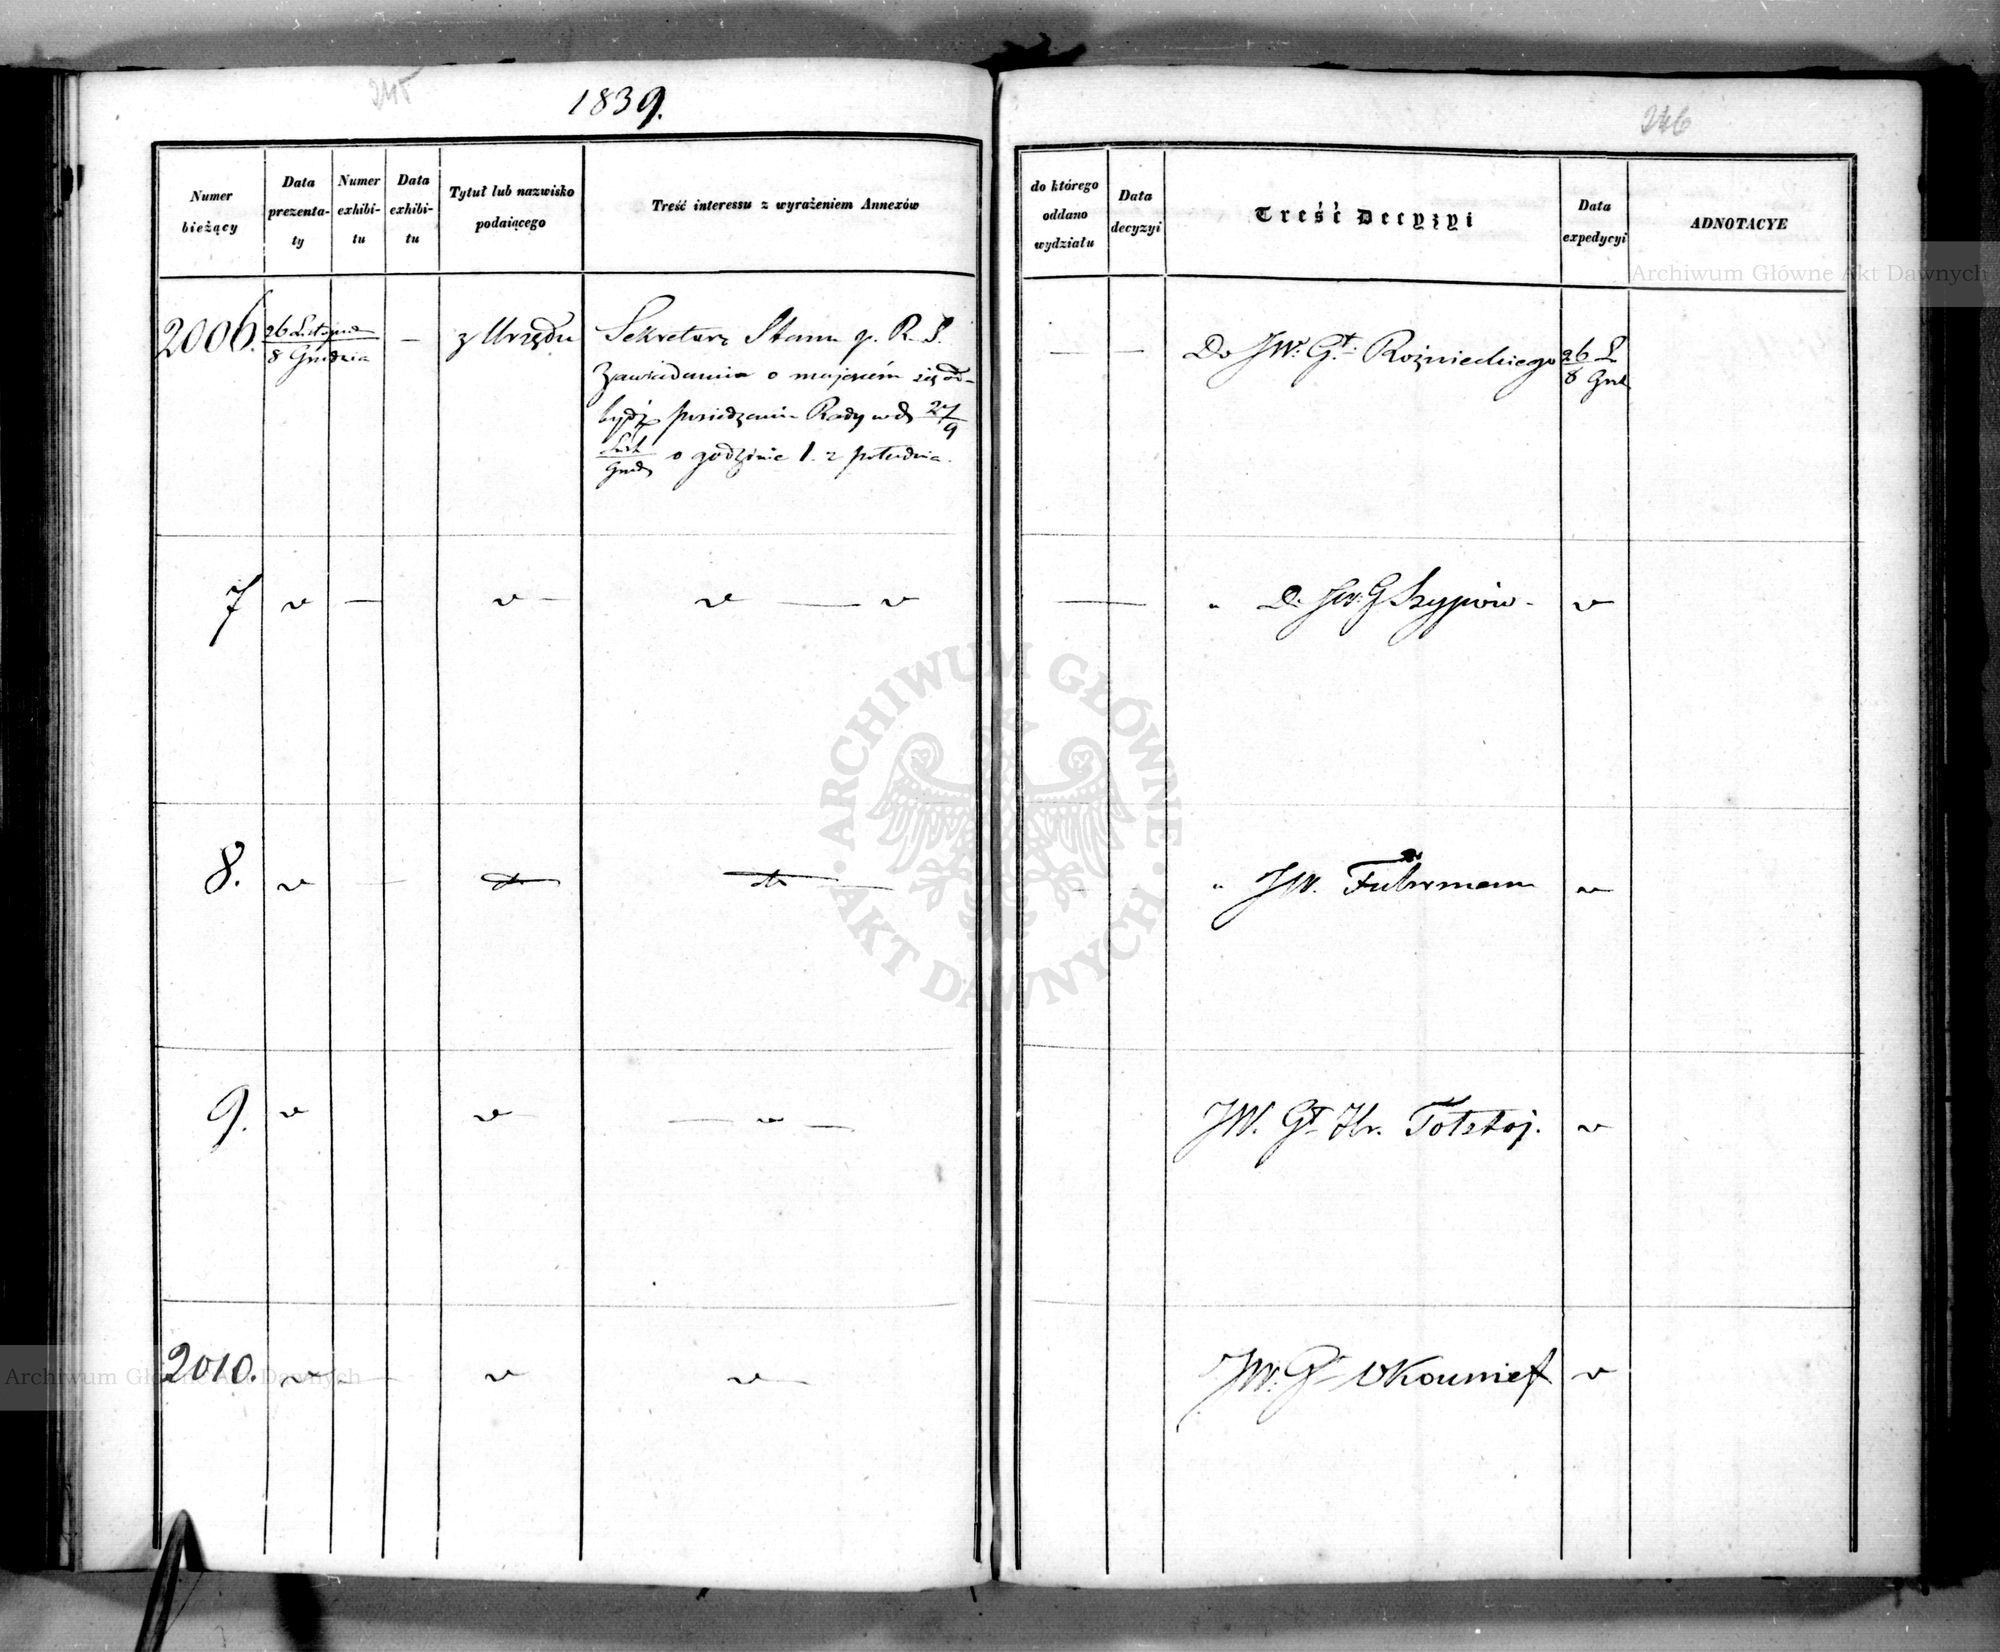 245
1839.
Numer bieżący
Data prezenta-ty
Numer exhibi-tu
Data exhibi-tu
Tytuł lub nazwisko podaiącego
Treść interessu z wyrażeniem Annexów
2006. 26 Listopada / 8 Grudnia — z Urzędu
Sekretarz Stanu p. R. S.
Zawiadamia o majacém się od-
bydź posiedzeniu Rady w d. 27/9
List/Grud o godzinie 1. z południa.
7 v — v — v — v
8. v — dto dto —
9. v v — v —
2010. v — — v v —
246
do którego oddano wydziału
Data decyzyi
Treść Decyzyi
Data expedycyi
ADNOTACYE
— — Do JW. Gł. Rożnieckiego 26 L / 8 Grud
— " Do JW. G Szypow - v
- - " JW. Fuhrmann v
JW. Gł Hr. Tołstoj. v
JW. Gł Okounief v
Archiwum Główne Akt Dawnych
ARCHIWUM GŁÓWNE · AKT DAWNYCH ·
Archiwum Główne Akt Dawnych